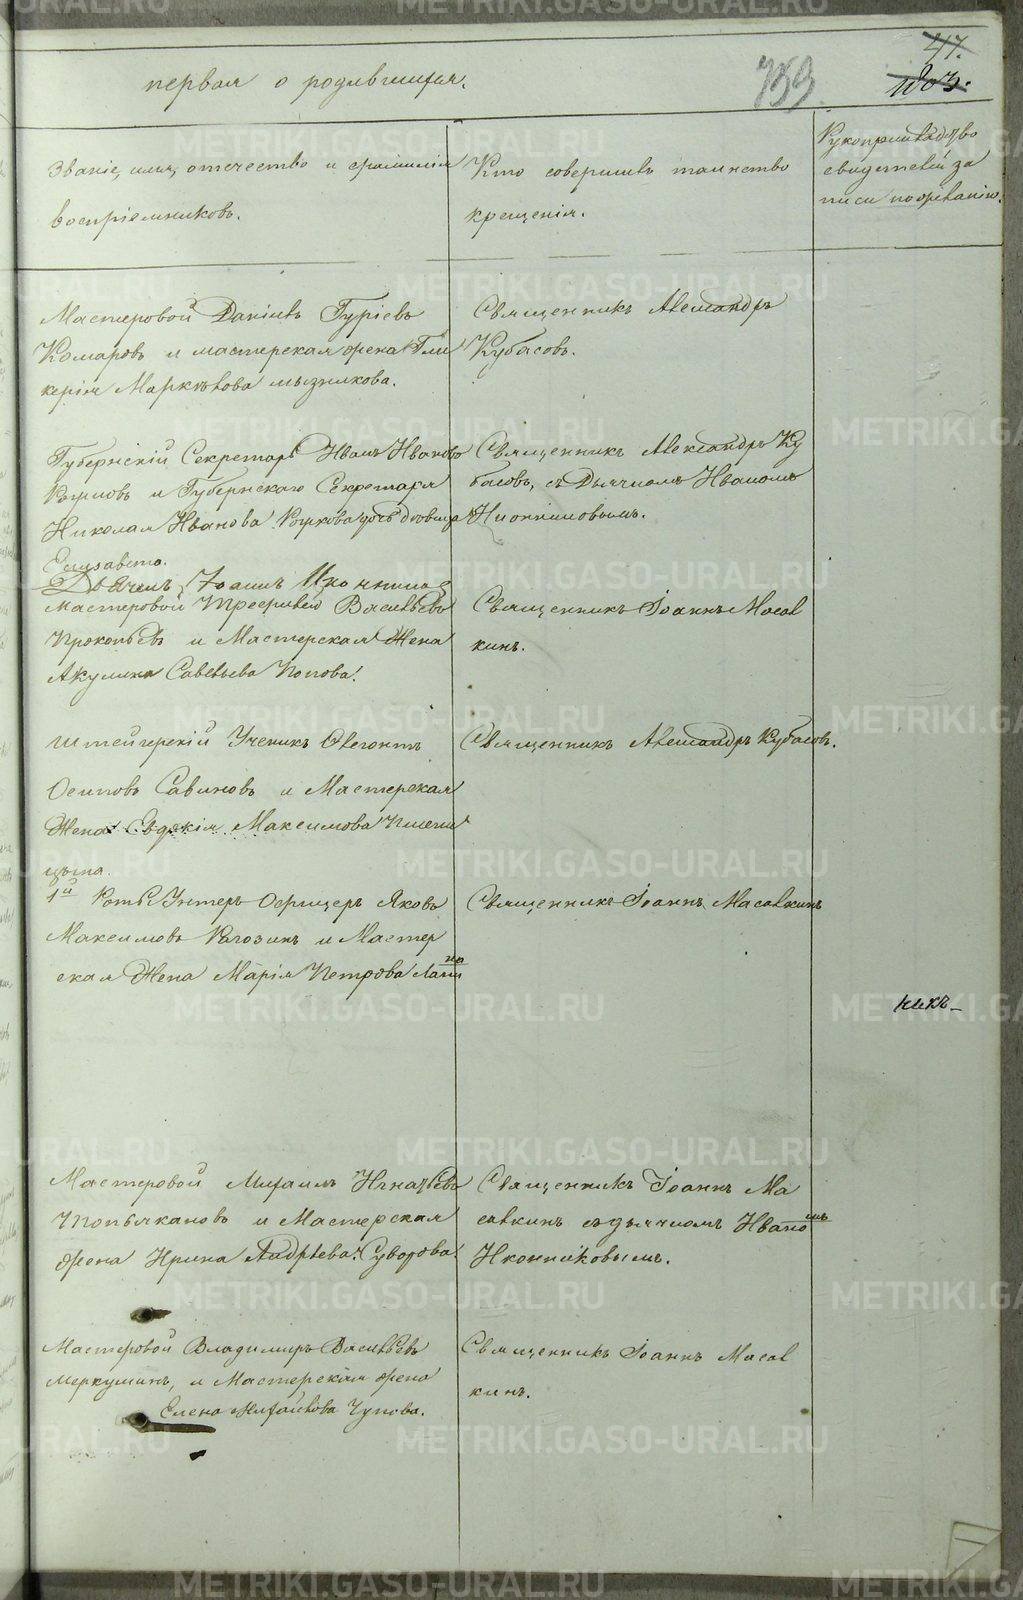 первая о родившихся.
759
47.
1803.
Званіе, имя, отечество и фамилія
воспріемниковъ.
Кто совершилъ таинство
крещенія.
Рукоприкладство
свидетелей за
писи по желанію.
Мастеровой Данилъ Гуріевъ
Комаровъ и мастерская жена Гли
керія Маркѣлова
Священникъ Александръ
Кубасовъ.
Губернскій Секретарь Иванъ Ивановъ
и Губернскаго Секретаря
Николая Иванова дочь девица
Елисавета.
Священникъ Александръ Ку
басовъ, съ Дьячкомъ Иваномъ
Дьячекъ Іоаннъ
Мастеровой Трефилей Васильевъ
Прокопьевъ и Мастерская Жена
Акулина Савельева Попова.
Священникъ Іоаннъ Масал
кинъ.
Штейгерскій Ученикъ Флегонтъ
Осиповъ Савиновъ и Мастерская
Жена Евдокія Максимова Пшени
цына.
Священникъ Александръ Кубасовъ.
1й Роты Унтеръ Офицеръ Яковъ
Максимовъ Рагозинъ и Мастер
ская Жена Марія Петрова
Священникъ Іоаннъ Масалкинъ
никъ
Мастеровой Михаилъ Игнатьевъ
и Мастерская
жена Ирина Андрѣева Суворова.
Священникъ Іоаннъ Ма
салкинъ съ дьячкомъ Иваномъ
Иконниковымъ.
Мастеровой Владимиръ Васильевъ
Меркушинъ, и Мастерская жена
Елена Михайлова Чупова.
Священникъ Іоаннъ Масал
кинъ.
METRIKI.GASO-URAL.RU